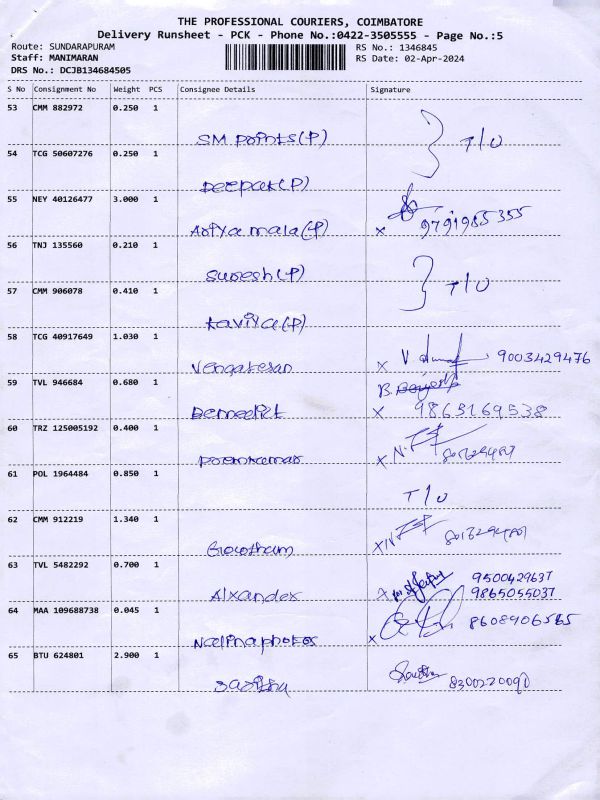 THE PROFESSIONAL COURIERS, COIMBATORE
Delivery Runsheet - PCK - Phone No.:0422-3505555 - Page No.:5
Route: SUNDARAPURAM RS No.: 1346845
Staff: MANIMARAN RS Date: 02-Apr-2024
DRS No.: DCJB134684505
S No Consignment No Weight PCS Consignee Details Signature
53 CMM 882972 0.250 1
SM points(P) T/O
54 TCG 50607276 0.250 1
Deepak(P)
55 NEY 40126477 3.000 1
Asiya mala(P) x 9791985355
56 TNJ 135560 0.210 1
Suresh(P)
57 CMM 906078 0.410 1 T/O
Kaviya(P)
58 TCG 40917649 1.030 1
Vengatesan x V 9003429476
59 TVL 946684 0.680 1 B.
x 9865169538
60 TRZ 125005192 0.400 1
x N.
61 POL 1964484 0.850 1
T/O
62 CMM 912219 1.340 1
Gowtham x N
63 TVL 5482292 0.700 1
9500429637
Alxandex x 9865055037
64 MAA 109688738 0.045 1
Nallinaphotos x 8608406565
65 BTU 624801 2.900 1
8300220090